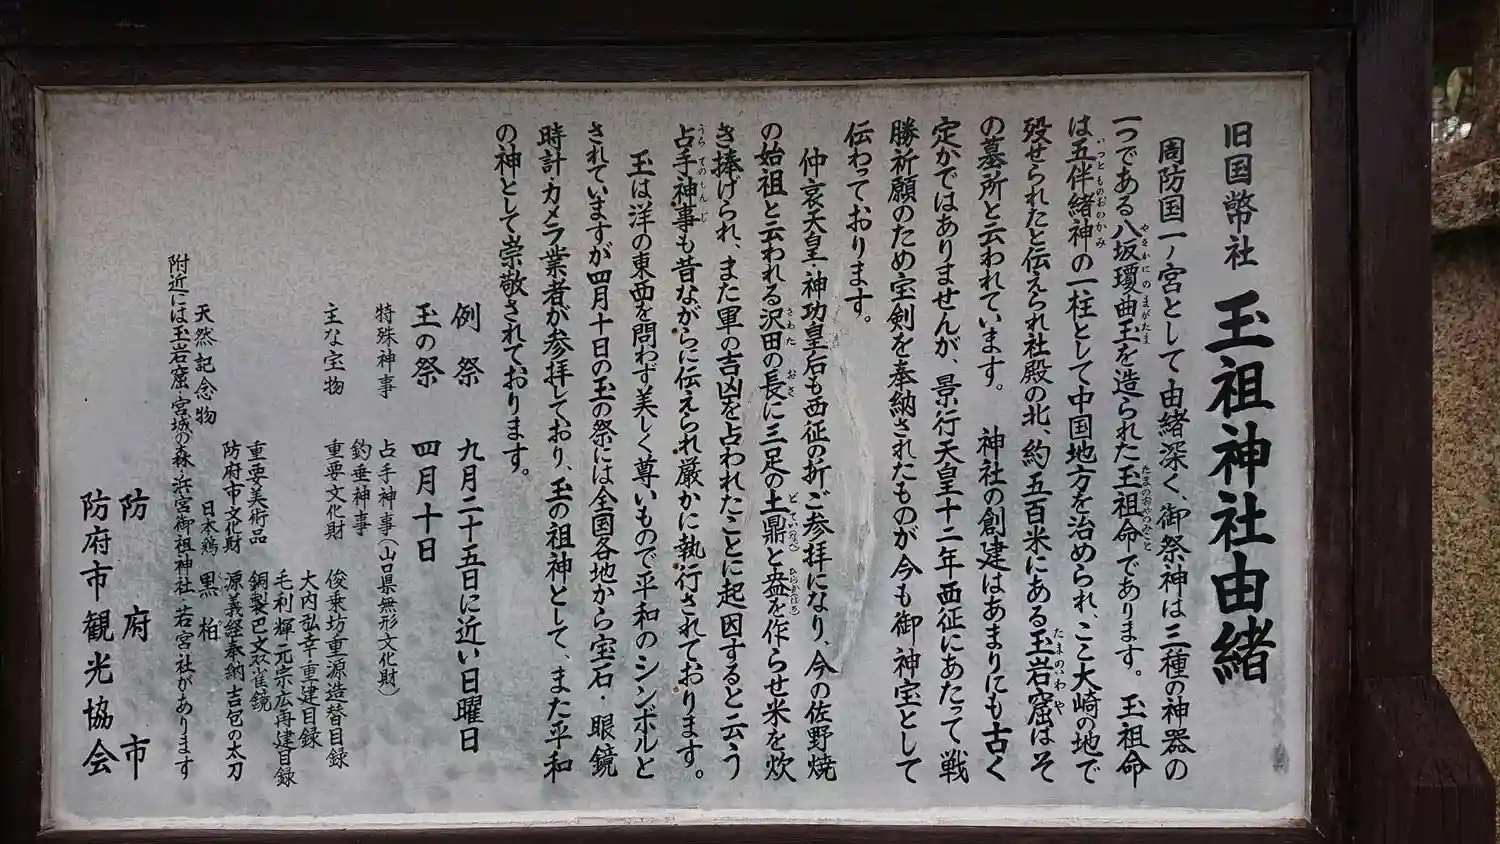 旧国幣社 玉祖神社由緒
周防国一ノ宮として由緒深く、御祭神は三種の神器の
一つである八坂瓊曲玉を造られた玉祖命であります。玉祖命
は五伴緒神の一柱として中国地方を治められ、ここ大崎の地で
歿せられたと伝えられ社殿の北、約五百米にある玉岩窟はそ
の墓所と云われています。 神社の創建はあまりにも古く
定かではありませんが、景行天皇十二年西征にあたって戦
勝祈願のため宝剣を奉納されたものが今も御神宝として
伝わっております。
仲哀天皇・神功皇后も西征の折ご参拝になり、今の佐野焼
の始祖と云われる沢田の長に三足の土鼎と盎を作らせ米を炊
き捧げられ、また軍の吉凶を占われたことに起因すると云う
占手神事も昔ながらに伝えられ厳かに執行されております。
玉は洋の東西を問わず美しく尊いもので平和のシンボルと
されていますが四月十日の玉の祭には全国各地から宝石・眼鏡
時計・カメラ業者が参拝しており、玉の祖神として、また平和
の神として崇敬されております。
例祭 九月二十五日に近い日曜日
玉の祭 四月十日
特殊神事 占手神事(山口県無形文化財)
釣垂神事
主な宝物 重要文化財 俊乗坊重源造替目録
大内弘幸重建目録
毛利輝元宗広再建目録
重要美術品 銅製巴文双雀鏡
防府市文化財 源義経奉納吉包の太刀
天然記念物 日本鶏 黒柏
附近には玉岩窟・宮城の森・浜宮御祖神社 若宮社があります
防府市
防府市観光協会